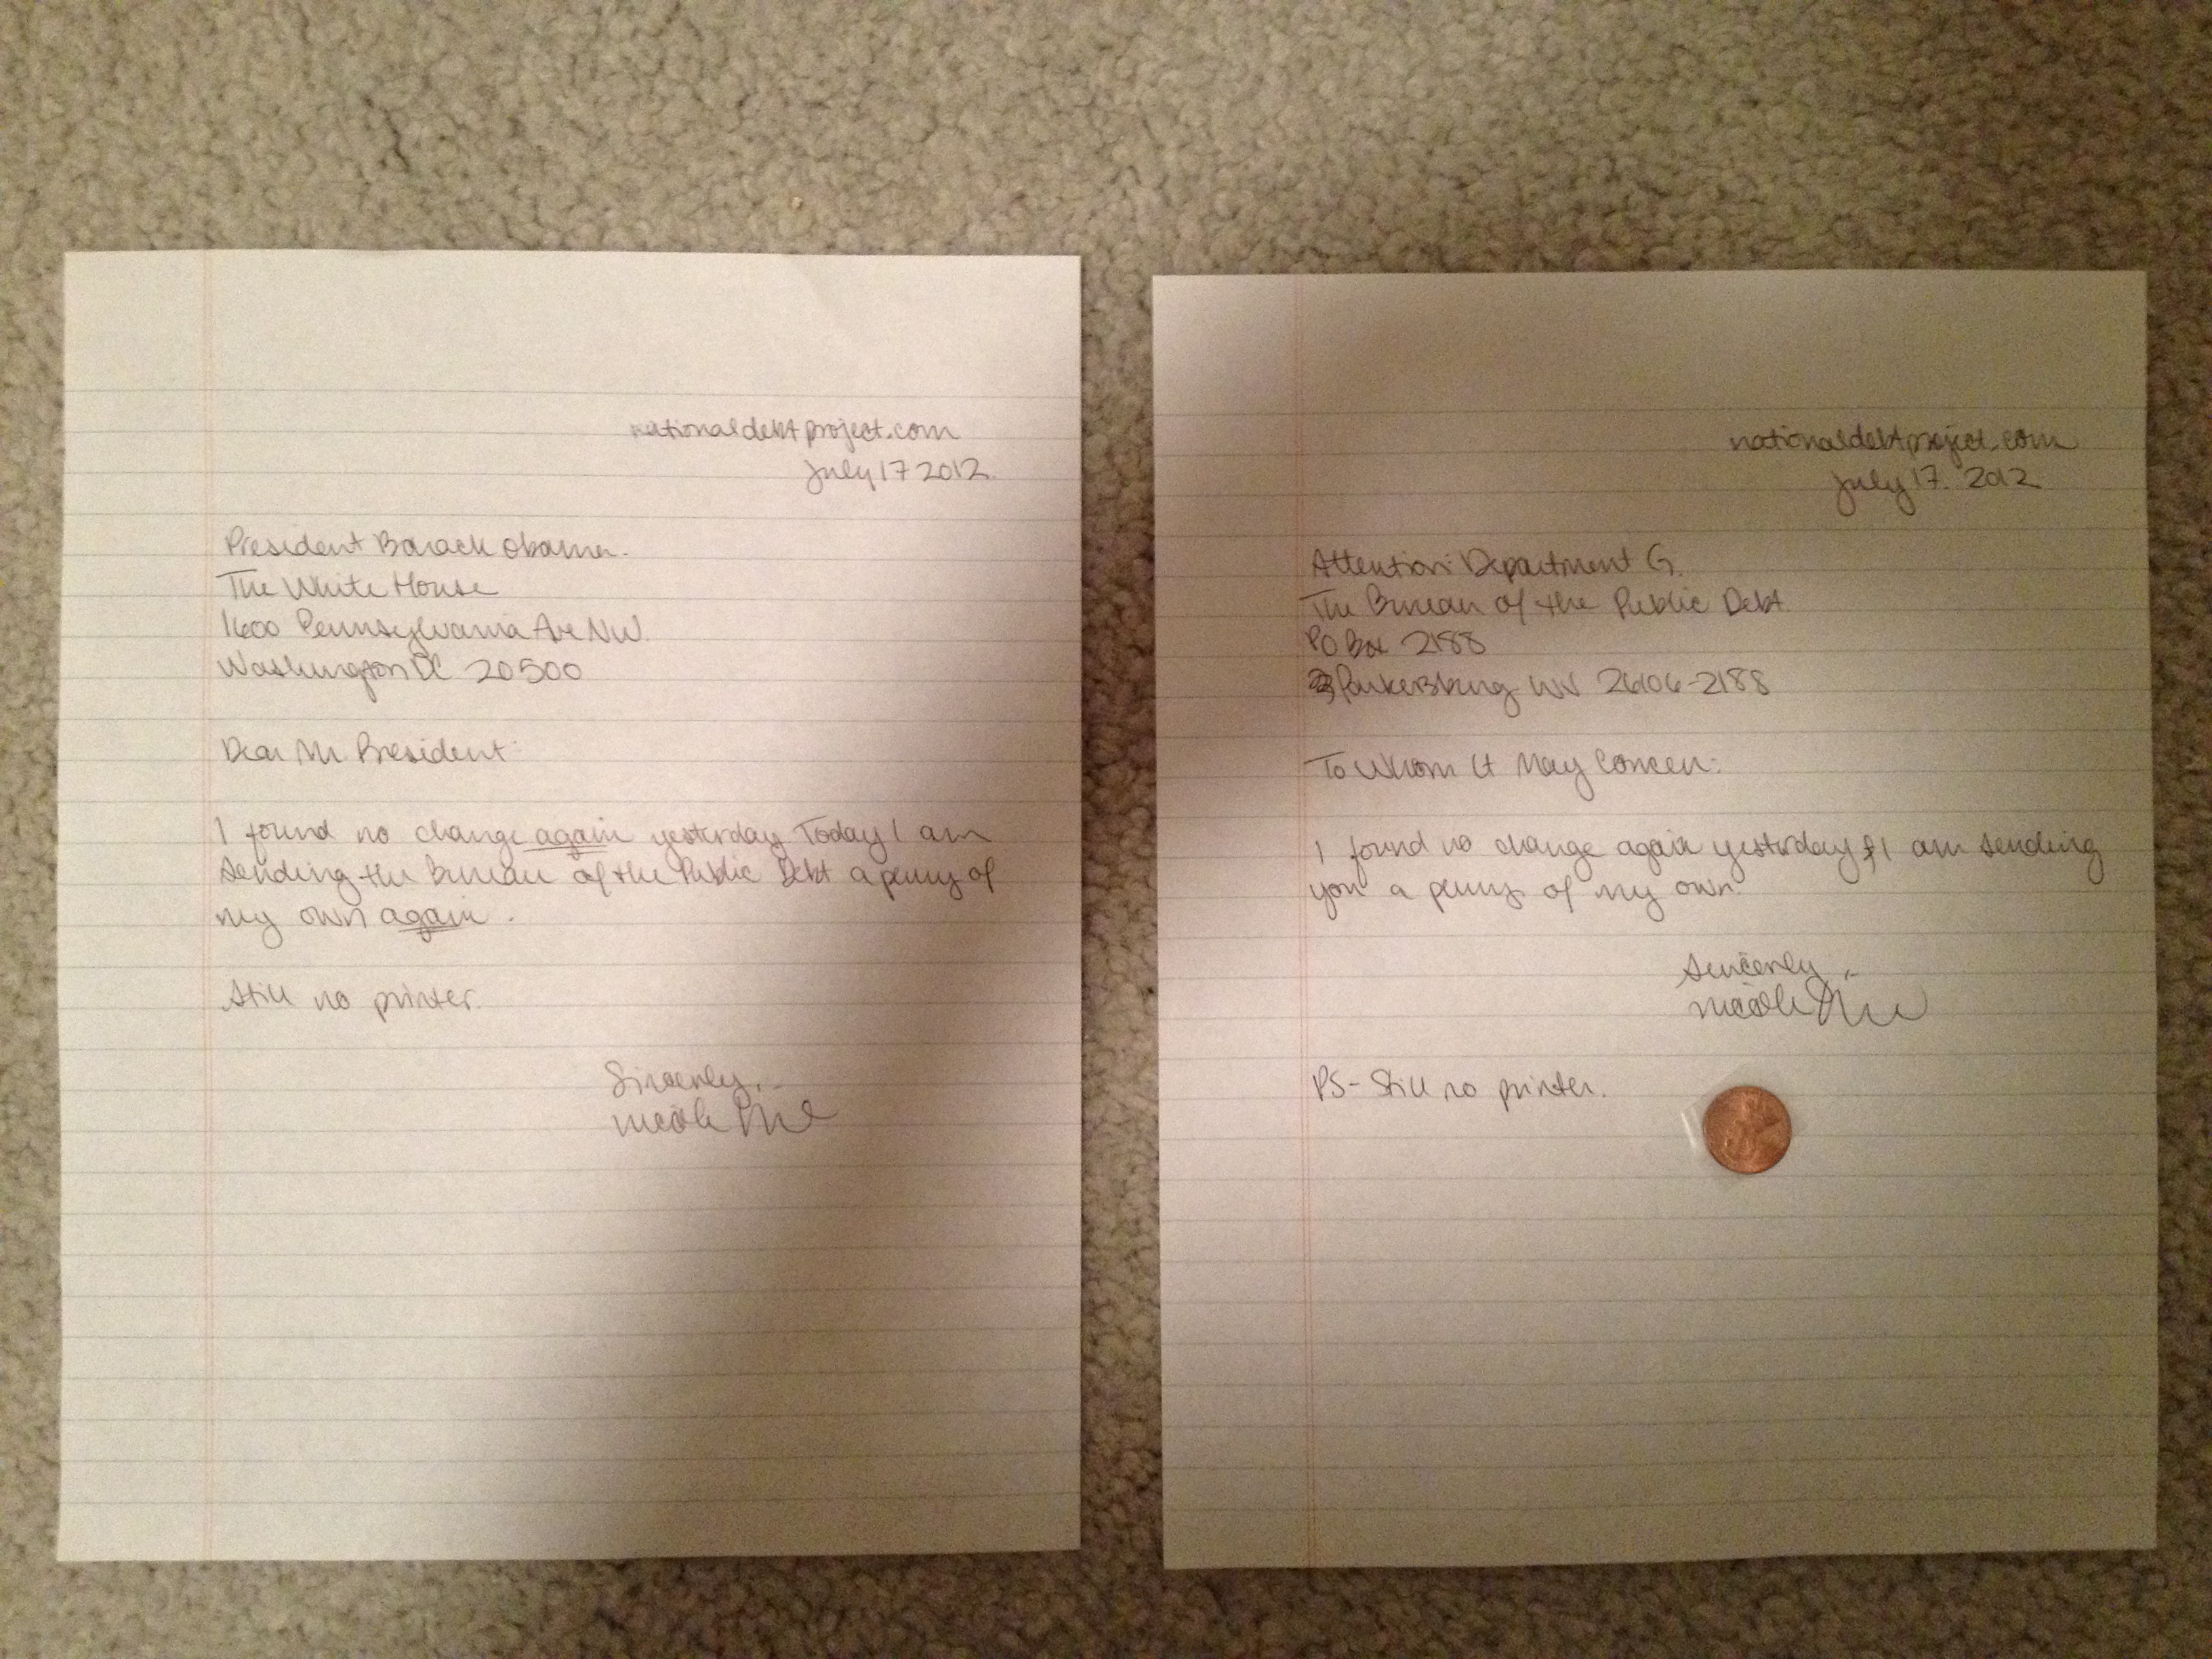 nationaldebtproject.com
July 17 2012.
President Barack Obama.
The White House
1600 Pennsylvania Ave NW
Washington DC 20500
Dear Mr President:
I found no change again yesterday Today I am
sending the Bureau of the Public Debt a penny of
my own again.
Still no printer.
Sincerely,
Nicole
nationaldebtproject.com
July 17. 2012
Attention: Department G.
The Bureau of the Public Debt
PO Box 2188
Parkersburg WV 26106-2188
To Whom It May Concern:
I found no change again yesterday & I am sending
you a penny of my own.
Sincerely,
Nicole
PS- Still no printer.